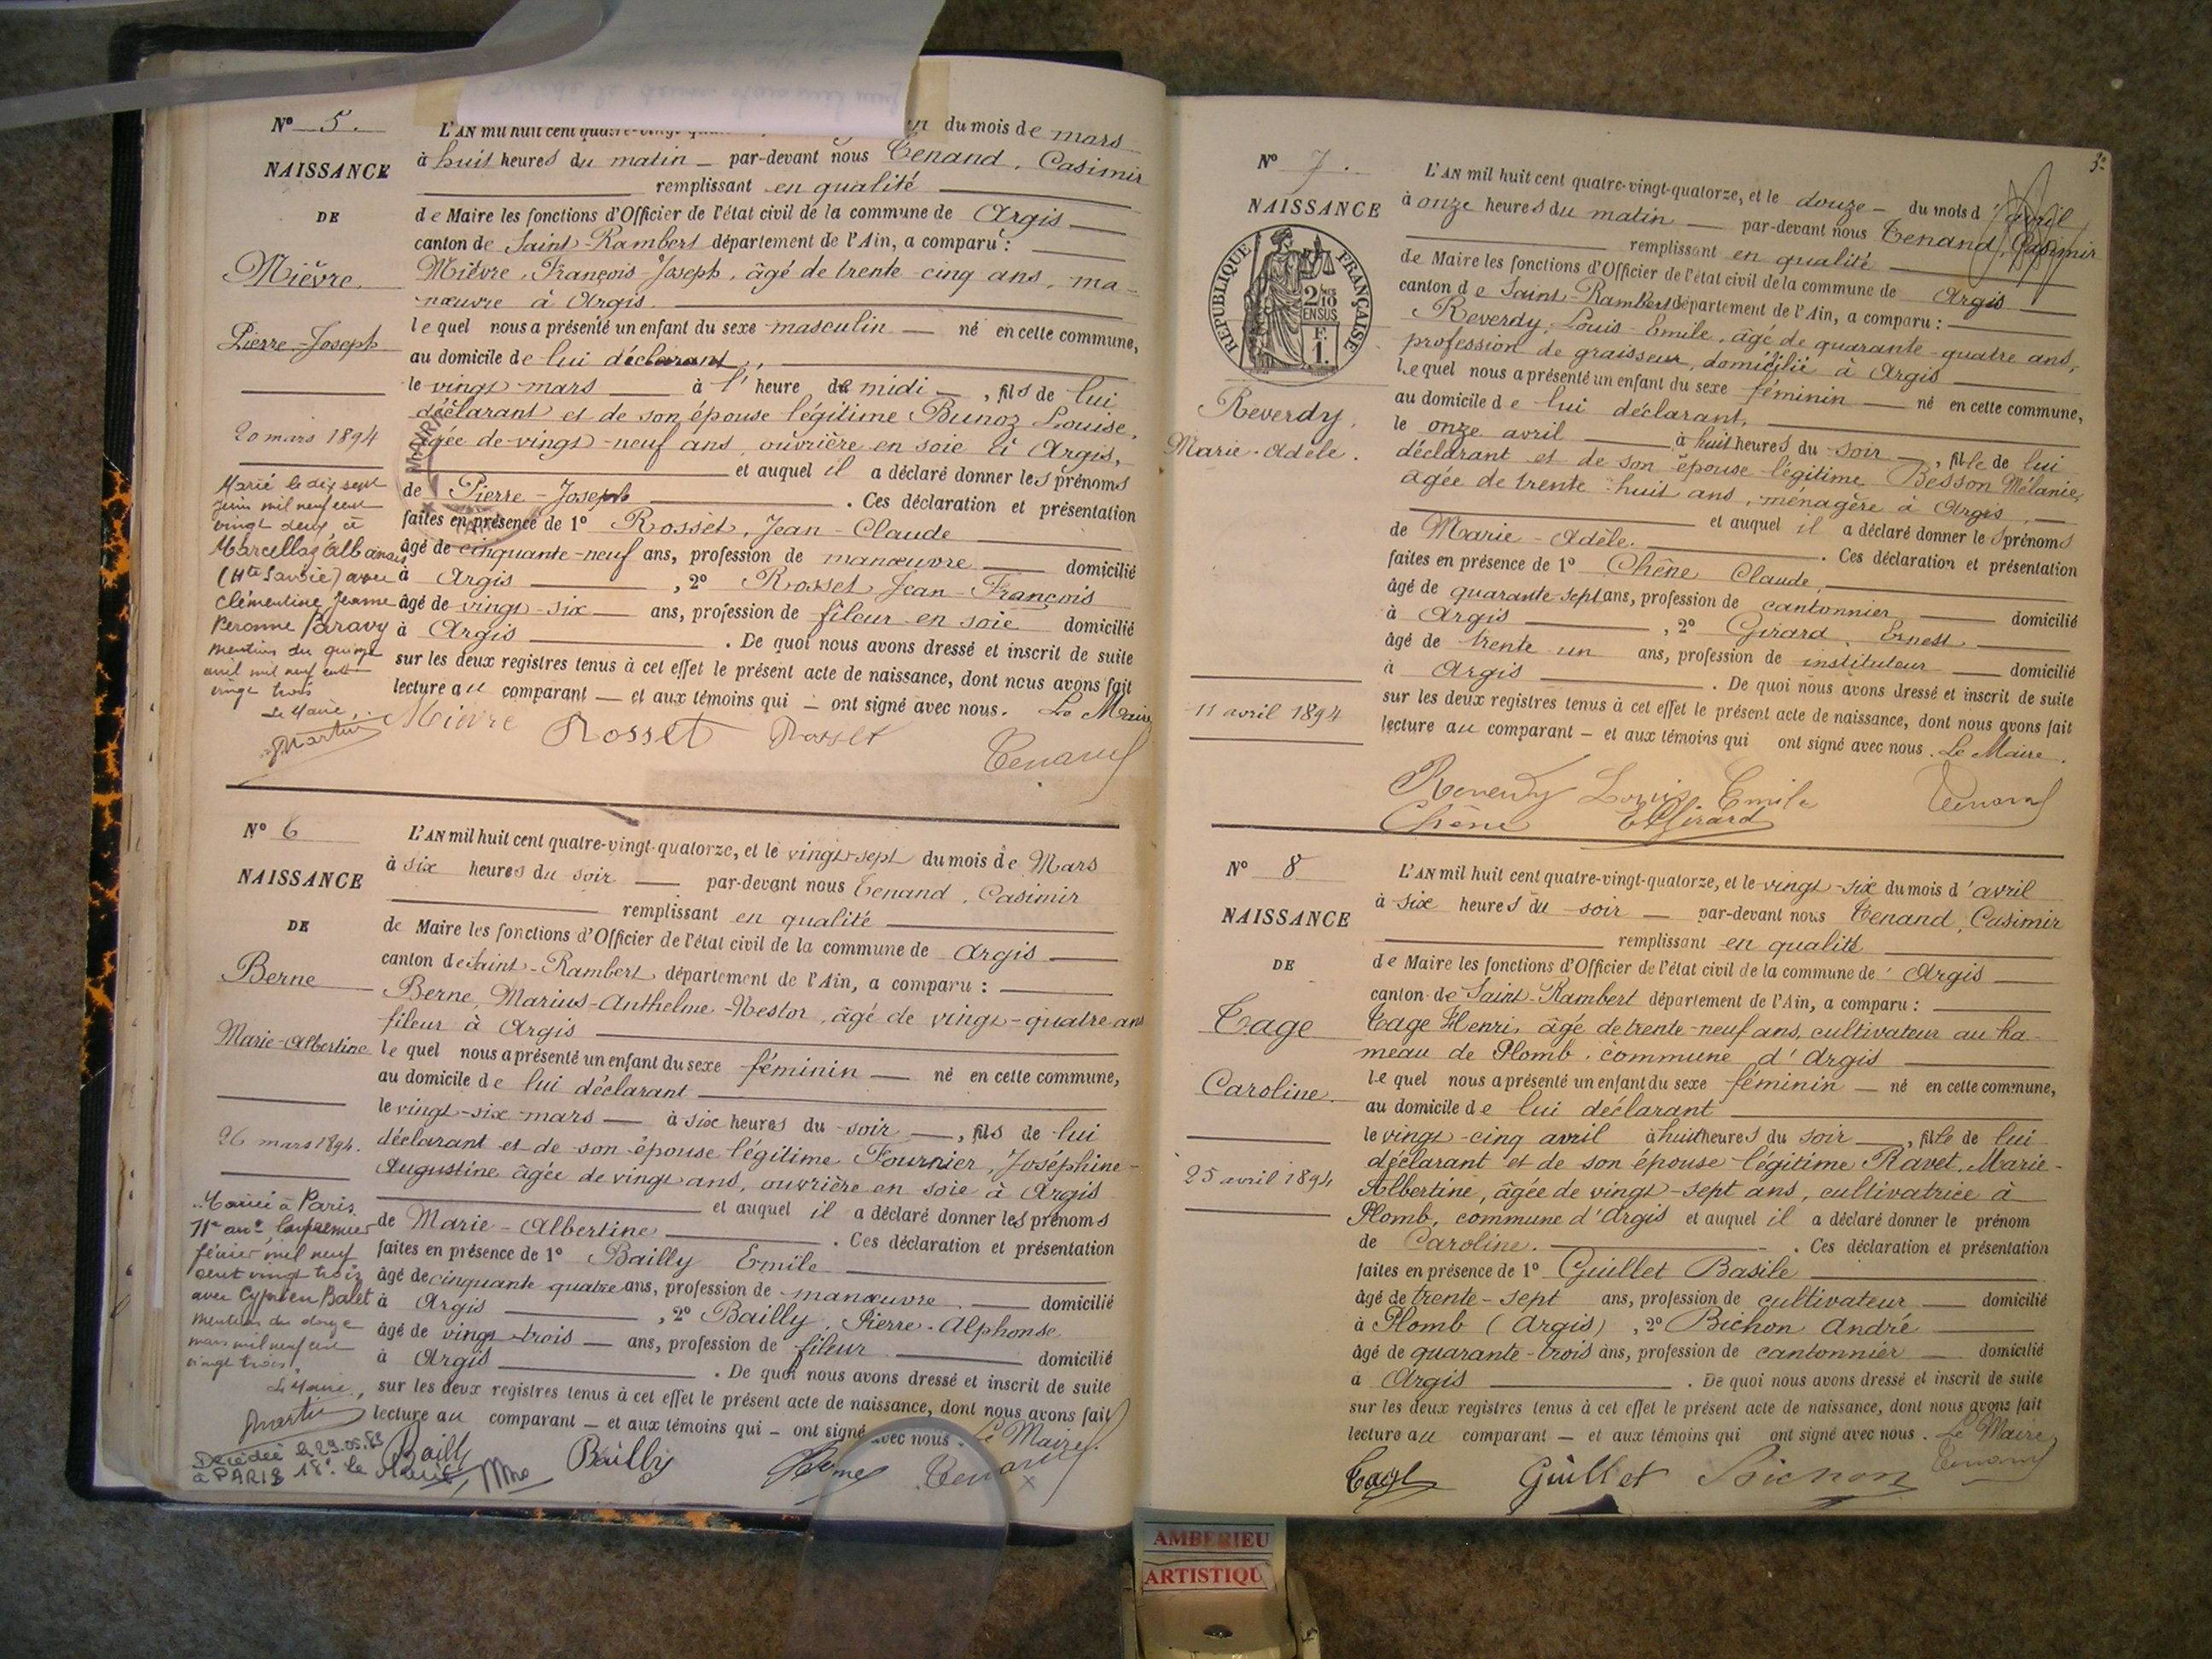 N° 5.
NAISSANCE
DE
Mièvre
Pierre-Joseph
20 mars 1894
Marié le dix sept
juin mil neuf cent
vingt deux à
Marcellaz Albanais
(Hte Savoie) avec
Clémentine Jeanne
Peronne Paravy
mention du quinze
avril mil neuf cent
vingt trois
Le Maire,
Martin
L'AN mil huit cent quatre-vingt- du mois de mars
à huit heures du matin — par-devant nous Tenand, Casimir
remplissant en qualité
de Maire les fonctions d'Officier de l'état civil de la commune de Argis
canton de Saint-Rambert département de l'Ain, a comparu :
Mièvre, François-Joseph, âgé de trente-cinq ans, ma-
nœuvre à Argis.
lequel nous a présenté un enfant du sexe masculin — né en cette commune,
au domicile de lui déclarant,
le vingt mars — à l'heure de midi —, fils de lui
déclarant et de son épouse légitime Bunoz Louise,
âgée de vingt-neuf ans, ouvrière en soie à Argis,
et auquel il a déclaré donner les prénoms
de Pierre-Joseph . Ces déclaration et présentation
faites en présence de 1° Rosset, Jean-Claude
âgé de cinquante-neuf ans, profession de manœuvre — domicilié
à Argis , 2° Rosset Jean-François
âgé de vingt-six — ans, profession de fileur en soie domicilié
à Argis . De quoi nous avons dressé et inscrit de suite
sur les deux registres tenus à cet effet le présent acte de naissance, dont nous avons fait
lecture au comparant — et aux témoins qui — ont signé avec nous. Le Maire
Mièvre Rosset Rosset
Tenand
N° 6
NAISSANCE
DE
Berne
Marie-Albertine
26 mars 1894.
Mariée à Paris
11e arrt le premier
février mil neuf
cent vingt trois
avec Cyprien Balet
mention du douze
mars mil neuf cent
vingt trois,
Le Maire,
Martin
Décédée le 29.05.83
à PARIS 18e. le Maire,
L'AN mil huit cent quatre-vingt-quatorze, et le vingt-sept du mois de Mars
à six heures du soir — par-devant nous Tenand, Casimir
remplissant en qualité
de Maire les fonctions d'Officier de l'état civil de la commune de Argis
canton de Saint-Rambert département de l'Ain, a comparu :
Berne, Marius-Anthelme-Nestor, âgé de vingt-quatre ans
fileur à Argis
lequel nous a présenté un enfant du sexe féminin — né en cette commune,
au domicile de lui déclarant
le vingt-six mars — à six heures du soir —, fils de lui
déclarant et de son épouse légitime Fournier, Joséphine-
Augustine âgée de vingt ans, ouvrière en soie à Argis
et auquel il a déclaré donner les prénoms
de Marie-Albertine . Ces déclaration et présentation
faites en présence de 1° Bailly Emile
âgé de cinquante quatre ans, profession de manœuvre — domicilié
à Argis , 2° Bailly, Pierre-Alphonse
âgé de vingt-trois — ans, profession de fileur domicilié
à Argis . De quoi nous avons dressé et inscrit de suite
sur les deux registres tenus à cet effet le présent acte de naissance, dont nous avons fait
lecture au comparant — et aux témoins qui — ont signé avec nous. Le Maire.
Bailly Bailly Berne Tenand
3e
N° 7.
NAISSANCE
RÉPUBLIQUE FRANÇAISE
2/10 EN SUS
F. 1.
Reverdy,
Marie-Adèle.
11 avril 1894
L'AN mil huit cent quatre-vingt-quatorze, et le douze — du mois d'avril
à onze heures du matin — par-devant nous Tenand, Casimir
remplissant en qualité
de Maire les fonctions d'Officier de l'état civil de la commune de Argis
canton de Saint-Rambert département de l'Ain, a comparu :
Reverdy, Louis-Emile, âgé de quarante-quatre ans,
profession de graisseur, domicilié à Argis
lequel nous a présenté un enfant du sexe féminin — né en cette commune,
au domicile de lui déclarant,
le onze avril — à huit heures du soir —, fille de lui
déclarant et de son épouse légitime Besson Mélanie,
âgée de trente-huit ans, ménagère à Argis,
et auquel il a déclaré donner les prénoms
de Marie-Adèle. . Ces déclaration et présentation
faites en présence de 1° Chêne Claude,
âgé de quarante sept ans, profession de cantonnier — domicilié
à Argis , 2° Girard, Ernest
âgé de trente un ans, profession de instituteur — domicilié
à Argis . De quoi nous avons dressé et inscrit de suite
sur les deux registres tenus à cet effet le présent acte de naissance, dont nous avons fait
lecture au comparant — et aux témoins qui ont signé avec nous. Le Maire.
Reverdy Louis Emile Tenand
Chêne E Girard
N° 8
NAISSANCE
DE
Tage
Caroline.
25 avril 1894
L'AN mil huit cent quatre-vingt-quatorze, et le vingt-six du mois d'avril
à six heures du soir — par-devant nous Tenand, Casimir
remplissant en qualité
de Maire les fonctions d'Officier de l'état civil de la commune de Argis
canton de Saint-Rambert département de l'Ain, a comparu :
Tage Henri, âgé de trente-neuf ans, cultivateur au ha-
meau de Plomb, commune d'Argis
lequel nous a présenté un enfant du sexe féminin — né en cette commune,
au domicile de lui déclarant
le vingt-cinq avril à huit heures du soir —, fille de lui
déclarant et de son épouse légitime Ravet, Marie-
Albertine, âgée de vingt-sept ans, cultivatrice à
Plomb, commune d'Argis et auquel il a déclaré donner le prénom
de Caroline. . Ces déclaration et présentation
faites en présence de 1° Guillet Basile
âgé de trente-sept ans, profession de cultivateur — domicilié
à Plomb (Argis) , 2° Bichon André
âgé de quarante-trois ans, profession de cantonnier — domicilié
à Argis . De quoi nous avons dressé et inscrit de suite
sur les deux registres tenus à cet effet le présent acte de naissance, dont nous avons fait
lecture au comparant — et aux témoins qui ont signé avec nous. Le Maire
Tage Guillet Bichon Tenand
AMBERIEU
ARTISTIQU